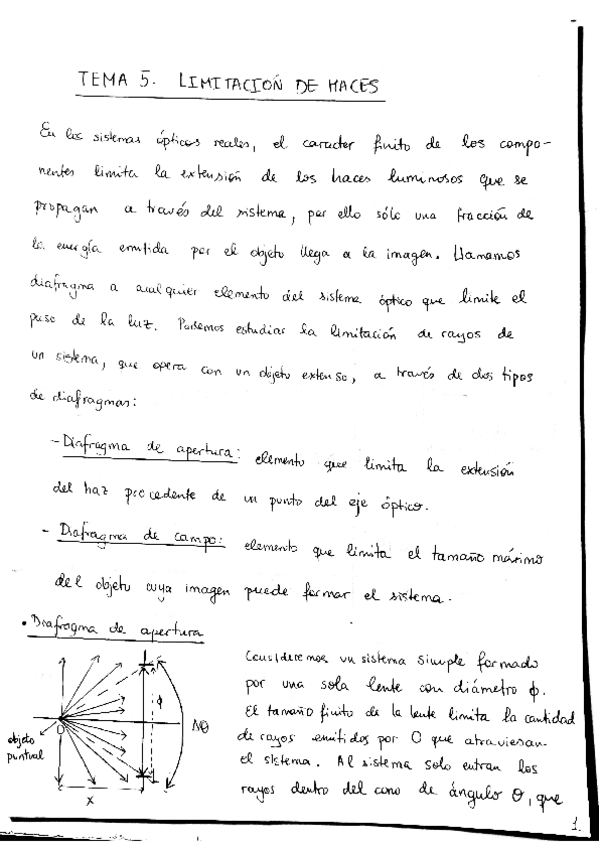 TEMA 5. LIMITACIÓN DE HACES
En los sistemas ópticos reales, el caracter finito de los compo-
nentes limita la extensión de los haces luminosos que se
propagan a través del sistema, por ello sólo una fracción de
la energía emitida por el objeto llega a la imagen. Llamamos
diafragma a cualquier elemento del sistema óptico que limite el
paso de la luz. Podemos estudiar la limitación de rayos de
un sistema, que opera con un objeto extenso, a través de dos tipos
de diafragmas:
- Diafragma de apertura: elemento que limita la extensión
del haz procedente de un punto del eje óptico.
- Diafragma de campo: elemento que limita el tamaño máximo
del objeto cuya imagen puede formar el sistema.
• Diafragma de apertura
Consideremos un sistema simple formado
por una sola lente con diámetro ϕ.
El tamaño finito de la lente limita la cantidad
de rayos emitidos por O que atraviesan
el sistema. Al sistema solo entran los
rayos dentro del cono de ángulo θ, que
O
objeto
puntual
x
ϕ
Δθ
1.